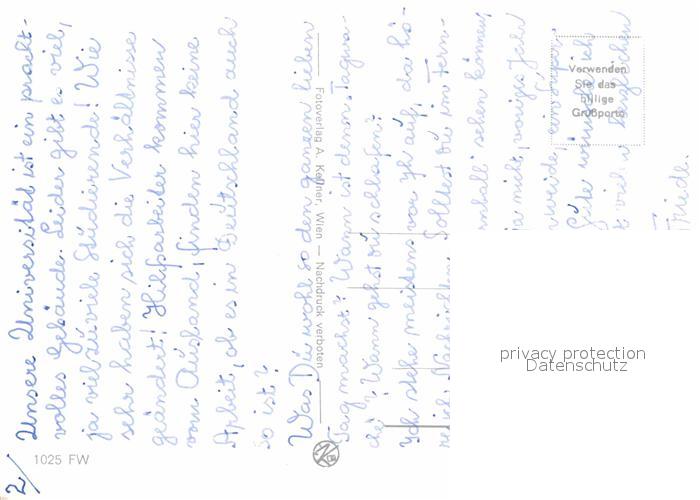 2/
Unsere Universität ist ein pracht-
volles Gebäude. Leider gibt es viel,
ja viel zu viele Studierende! Wie
sehr haben sich die Verhältnisse
geändert! Hilfsarbeiter kommen
vom Ausland, finden hier keine
Arbeit, ob es in Deutschland auch
so ist?
Was Du wohl so den ganzen lieben
Tag machst? Wann ist denn Tagwa-
che? Wann gehst du schlafen?
Ich stehe meistens vor 7h auf, da hö-
re ich Nachrichten. Solltest Du im Fern-
sehen können
ja nicht, voriges Jahr
wurde
Gute wünscht ich
viel u herzlichen
Friede.
Fotoverlag A. Kellner, Wien — Nachdruck verboten
1025 FW
Verwenden
Sie das
billige
Grußporto
privacy protection
Datenschutz